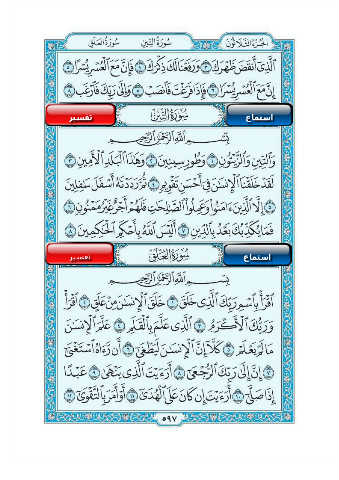 الجزء الثلاثون سورة التين سورة العلق
ٱلَّذِىٓ أَنقَضَ ظَهْرَكَ ٣ وَرَفَعْنَا لَكَ ذِكْرَكَ ٤ فَإِنَّ مَعَ ٱلْعُسْرِ يُسْرًا ٥
إِنَّ مَعَ ٱلْعُسْرِ يُسْرًا ٦ فَإِذَا فَرَغْتَ فَٱنصَبْ ٧ وَإِلَىٰ رَبِّكَ فَٱرْغَب ٨
استماع سورة التين تفسير
بِسْمِ ٱللَّهِ ٱلرَّحْمَٰنِ ٱلرَّحِيمِ
وَٱلتِّينِ وَٱلزَّيْتُونِ ١ وَطُورِ سِينِينَ ٢ وَهَٰذَا ٱلْبَلَدِ ٱلْأَمِينِ ٣
لَقَدْ خَلَقْنَا ٱلْإِنسَٰنَ فِىٓ أَحْسَنِ تَقْوِيمٍ ٤ ثُمَّ رَدَدْنَٰهُ أَسْفَلَ سَٰفِلِينَ
٥ إِلَّا ٱلَّذِينَ ءَامَنُوا۟ وَعَمِلُوا۟ ٱلصَّٰلِحَٰتِ فَلَهُمْ أَجْرٌ غَيْرُ مَمْنُونٍ ٦
فَمَا يُكَذِّبُكَ بَعْدُ بِٱلدِّينِ ٧ أَلَيْسَ ٱللَّهُ بِأَحْكَمِ ٱلْحَٰكِمِينَ ٨
استماع سورة العلق تفسير
بِسْمِ ٱللَّهِ ٱلرَّحْمَٰنِ ٱلرَّحِيمِ
ٱقْرَأْ بِٱسْمِ رَبِّكَ ٱلَّذِى خَلَقَ ١ خَلَقَ ٱلْإِنسَٰنَ مِنْ عَلَقٍ ٢ ٱقْرَأْ
وَرَبُّكَ ٱلْأَكْرَمُ ٣ ٱلَّذِى عَلَّمَ بِٱلْقَلَمِ ٤ عَلَّمَ ٱلْإِنسَٰنَ
مَا لَمْ يَعْلَمْ ٥ كَلَّآ إِنَّ ٱلْإِنسَٰنَ لَيَطْغَىٰٓ ٦ أَن رَّءَاهُ ٱسْتَغْنَىٰٓ
٧ إِنَّ إِلَىٰ رَبِّكَ ٱلرُّجْعَىٰٓ ٨ أَرَءَيْتَ ٱلَّذِى يَنْهَىٰ ٩ عَبْدًا
إِذَا صَلَّىٰٓ ١٠ أَرَءَيْتَ إِن كَانَ عَلَى ٱلْهُدَىٰٓ ١١ أَوْ أَمَرَ بِٱلتَّقْوَىٰٓ ١٢
٥٩٧